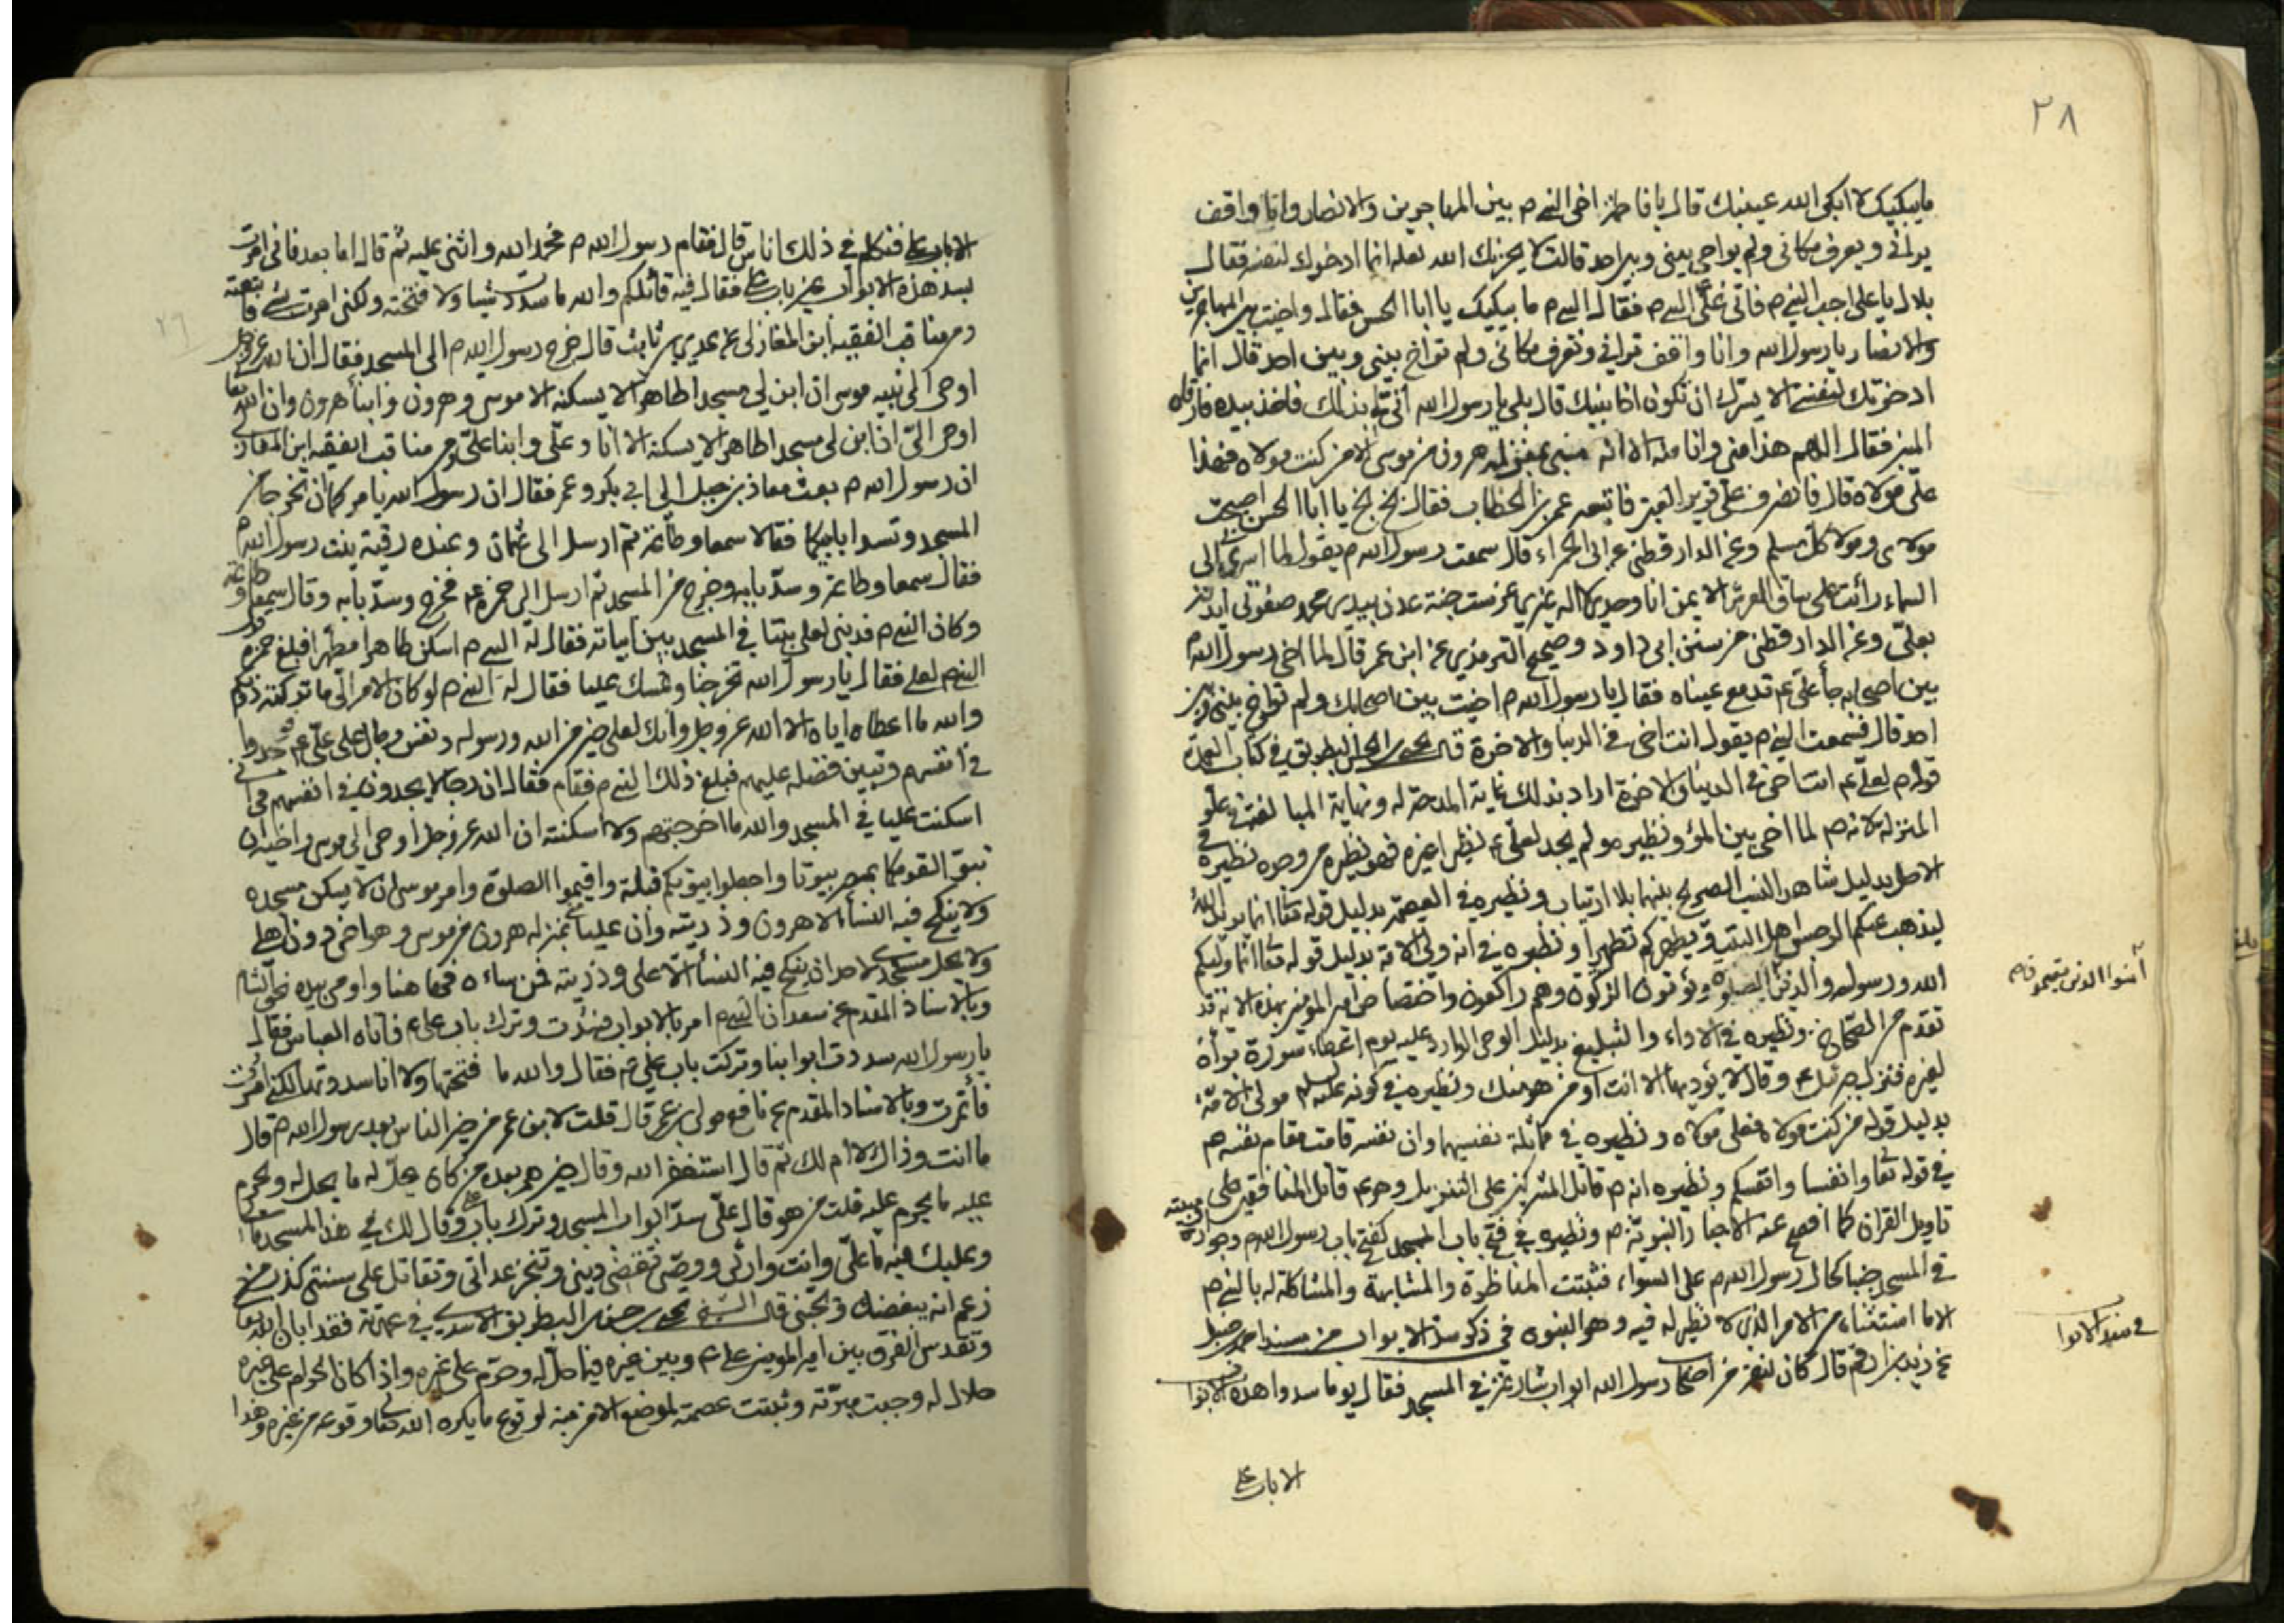 ٢٨
ما يبكيك لا ابكى الله عينيك قال يا فاطمة اخى النبي م بين المهاجرين والانصار وانا واقف
يرانى ويعرف مكانى ولم يواخى بينى وبين احد قالت لا يحزنك الله لعله انما ادخرك لنفسه فقال
بلال يا على اجب النبي م فاتى على النبي م فقال النبي م ما يبكيك يا ابا الحسن فقال واخيت بين المهاجرين
والانصار يا رسول الله وانا واقف ترانى وتعرف مكانى ولم تواخ بينى وبين احد قال انما
ادخرتك لنفسى الا يسرك ان تكون اخا نبيك قال بلى يا رسول الله انى لى بذلك فاخذ بيده فارقاه
المنبر فقال اللهم هذا منى وانا منه الا انه منى بمنزلة هرون من موسى الا من كنت مولاه فهذا
على مولاه قال فانصرف على قرير العين فاتبعه عمر بن الخطاب فقال بخ بخ يا ابا الحسن اصبحت
مولاى ومولا كل مسلم وعن الدار قطنى عن ابى الحمراء قال سمعت رسول الله م يقول لما اسرى بى الى
السماء رأيت على ساق العرش الايمن انا وحدى لا اله غيرى غرست جنة عدن بيدى محمد صفوتى ايدته
بعلى وعن الدار قطنى من سنن ابى داود وصحيح الترمذى عن ابن عمر قال لما اخى رسول الله م
بين اصحابه جأ على ع تدمع عيناه فقال يا رسول الله م اخيت بين اصحابك ولم تواخ بينى وبين
احد قال فسمعت النبي م يقول انت اخى فى الدنيا والاخرة قال يحيى بن الحسن البطريق فى كتاب العمدة
قوله م لعلى ع انت اخى فى الدنيا والاخرة اراد بذلك غاية المدحة له ونهاية المبالغة فى علو
المنزلة لانه م لما اخى بين المرؤ ونظيره ولم يجد لعلى ع نظيرا غيره فهو نظيره من وجوه نظيره فى
الاصل بدليل شاهد النسب الصريح بينهما بلا ارتياب ونظيره فى العصمة بدليل قوله تعا انما يريد الله
ليذهب عنكم الرجس اهل البيت ويطهركم تطهيرا ونظيره فى انه ولى الامة بدليل قوله تعا انما وليكم
الله ورسوله والذين الصلوة ويؤتون الزكوة وهم راكعون واختصاص امير المؤمنين بهذه الاية قد
آمنوا الذين يقيمون
تقدم من الصحاح ونظيره فى الاداء والتبليغ بدليل الوحى الوارد عليه يوم اعطاء سورة براة
لغيره فنزل جبرئيل ع وقال لا يؤديها الا انت او من هو منك ونظيره فى كونه عليه السلم مولى الامة
بدليل قوله من كنت مولاه فعلى مولاه ونظيره فى مماثلة نفسيهما وان نفسه قامت مقام نفسه م
فى قوله تعا وانفسنا وانفسكم ونظيره انه م قاتل المشركين على التنزيل وهو ع قاتل المنافقين على
تاويل القران كما افصح عنه الاخبار النبوية م ونظيره فى فتح باب المسجد كفتح باب رسول الله م وجوازه
فى المسجد جنبا كحال رسول الله م على السواء فثبتت المناظرة والمشابهة والمشاكلة له بالنبي م
الا ما استثناه من الامر الذى لا نظير له فيه وهو النبوه فى ذكر سد الابواب من مسند احمد بن حنبل
فى سد الابوا
عن زيد بن ارقم قال كان لنفر من اصحاب رسول الله ابواب شارعة فى المسجد فقال يوما سدوا هذه الابوا
الا باب على
الا باب على فتكلم فى ذلك اناس قال فقام رسول الله م فحمد الله واثنى عليه ثم قال اما بعد فانى امرت
بسد هذه الابواب غير باب على فقال فيه قائلكم والله ما سددت شيئا ولا فتحته ولكنى امرت بشئ فاتبعته
ومن مناقب الفقيه ابن المغازلى عن عدى بن ثابت قال خرج رسول الله م الى المسجد فقال ان الله عز وجل
اوحى الى نبيه موسى ان ابن لى مسجدا طاهرا لا يسكنه الا موسى وهرون وابنا هرون وان الله تعا
اوحى الىّ ان ابن لى مسجدا طاهرا لا يسكنه الا انا وعلى وابنا على ومن مناقب الفقيه ابن المغازلى
ان رسول الله م بعث معاذ بن جبل الى ابى بكر وعمر فقال ان رسول الله يامركما ان تخرجا من
المسجد وتسدا بابيكما فقالا سمعا وطاعة ثم ارسل الى عثمان وعنده رقية بنت رسول الله م
فقال سمعا وطاعة وسد بابه وخرج من المسجد ثم ارسل الى حمزة ع فخرج وسد بابه وقال سمعا وطاعة
وكان النبي م قد بنى لعلى بيتا فى المسجد بين ابياته فقال له النبي م اسكن طاهرا مطهرا فبلغ حمزه قول
النبي م لعلى فقال يا رسول الله تخرجنا وتمسك عليا فقال له النبي م لو كان الامر الى ما تركته
والله ما اعطاه اياه الا الله عز وجل وانك لعلى خير من الله ورسوله ونفس رجال على على ع فوجدوا
فى انفسهم وتبين فضله عليهم فبلغ ذلك النبي م فقام فقال ان رجالا يجدون فى انفسهم فى انى
اسكنت عليا فى المسجد والله ما اخرجتهم ولا اسكنته ان الله عز وجل اوحى الى موسى واخيه ان
تبوّءا لقومكما بمصر بيوتا واجعلوا بيوتكم قبلة واقيموا الصلوة وامر موسى ان لا يسكن مسجده
ولا ينكح فيه النساء الا هرون وذريته وان عليا منى بمنزله هرون من موسى وهو اخى دون اهلى
ولا يحل مسجدى لاحد ان ينكح فيه النساء الا على وذريته فمن ساءه فها هنا واومى بيده نحو الشام
وبالاسناد المقدم عن سعد ان النبي م امر بالابواب فسدت وترك باب على ع فاتاه العباس فقال
يا رسول الله سددت ابوابنا وتركت باب على ع فقال والله ما فتحتها ولا انا سددتها لكنى امرت
فأتمرت وبالاسناد المقدم عن نافع مولى بن عمر قال قلت لابن عمر من خير الناس بعد رسول الله م قال
ما انت وذاك لا ام لك ثم قال استغفر الله وقال خيرهم بعده من كان يحل له ما يحل له ويحرم
عليه ما يحرم عليه قلت من هو قال على سد ابواب المسجد وترك باب على وقال لك فى هذا المسجد ما لى
وعليك فيه ما على وانت وارثى ووصى تقضى دينى وتنجز عداتى وتقاتل على سنتى كذب من
زعم انه يبغضك ويحبنى قال الشيخ يحيى بن حسن البطريق الاسدى فى عمدته فقد ابان الله تعا
وتقدس الفرق بين امير المؤمنين على ع وبين غيره فيما حل له وحرم على غيره واذا كان الحرام على غيره
حلال له وجبت ميزته وثبتت عصمته لموضع الامن منه لوقوع ما يكره الله تعا وقوعه من غيره وهذا